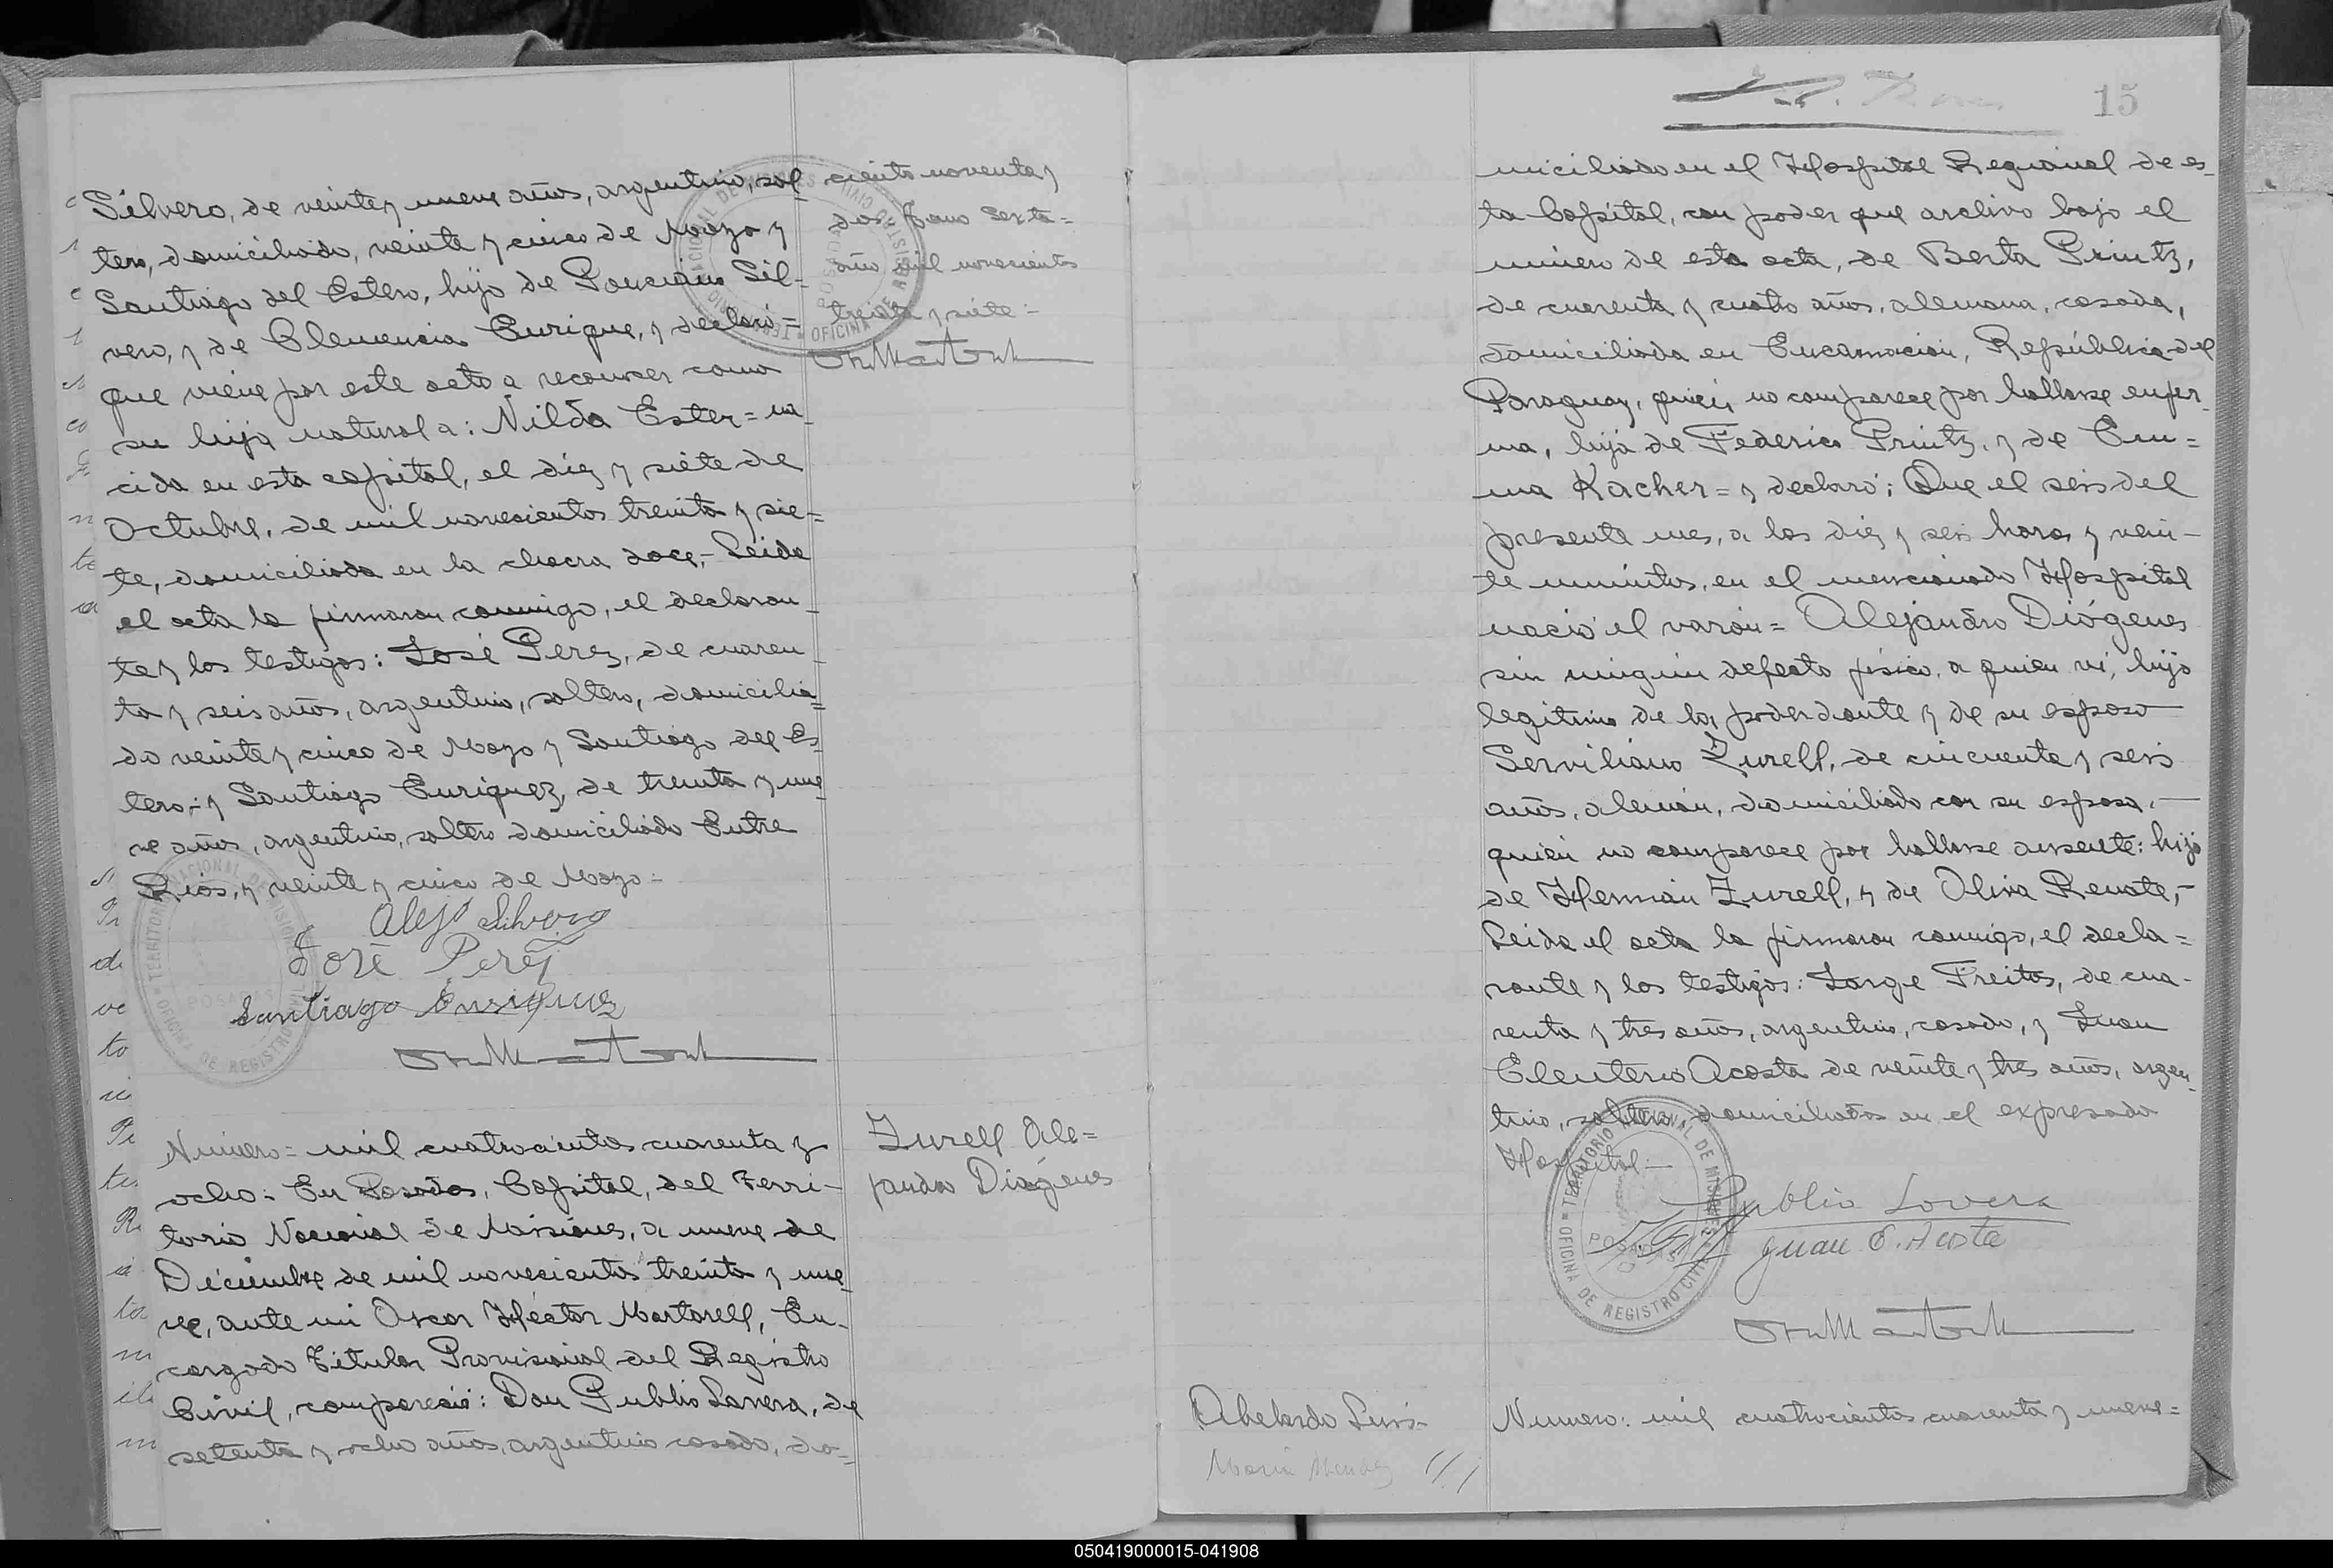 Silvero, de veinte y nueve años, argentino, sol-
tero, domiciliado, veinte y cinco de Mayo y
Santiago del Estero, hijo de Ponciano Sil-
vero, y de Clemencia Enrique, y declaró =
que viene por este acto a reconocer como
su hija natural a: Nilda Ester = na
cida en esta capital, el diez y siete de
Octubre, de mil novecientos treinta y sie=
te, domiciliada en la chacra doce,- Leida
el acta la firmaron conmigo, el declaran-
te y los testigos: José Perez, de cuaren-
ta y seis años, argentino, soltero, domicilia=
do veinte y cinco de Mayo y Santiago del Es-
tero,- y Santiago Enriquez, de treinta y nue-
ve años, argentino, soltero domiciliado Entre
Rios, y veinte y cinco de Mayo =
Alejo Silvero
José Perez
Santiago Enriquez
ciento noventa y
dos, tomo sexto =
año mil novecientos
treinta y siete =
Numero = mil cuatrocientos cuarenta y
ocho = En Posadas, Capital, del Terri-
torio Nacional de Misiones, a nueve de
Diciembre de mil novecientos treinta y nue-
ve, ante mi Oscar Héctor Martorell, En-
cargado Titular Provisional del Registro
Civil, compareció: Don Publio Lovera, de
setenta y ocho años, argentino casado, do=
Zurell Ale=
jandro Diógenes
15
miciliado en el Hospital Regional de es-
ta Capital, con poder que archivo bajo el
número de esta acta, de Berta Printz,
de cuarenta y cuatro años, alemana, casada,
domiciliada en Encarnación, República del
Paraguay, quien no comparece por hallarse enfer-
ma, hija de Federico Printz, y de Em=
ma Kacher = y declaró; Que el seis del
presente mes, a las diez y seis horas y vein-
te minutos, en el mencionado Hospital
nació el varón = Alejandro Diógenes
sin ningún defecto físico, a quien ví, hijo
legitimo de la poderdante y de su esposo
Serviliano Zurell, de cincuenta y seis
años, alemán, domiciliado con su esposa,-
quien no comparece por hallarse ausente: hijo
de Hermán Zurell, y de Oliva Renate,-
Leida el acta la firmaron conmigo, el decla=
rante y los testigos: Jorge Freitas, de cua-
renta y tres años, argentino, casado, y Juan
Eleuterio Acosta de veinte y tres años, argen-
tino, soltero domiciliados en el expresado
Hospital =
Publio Lovera
Juan E. Acosta
Abelardo Luis-
Maria Mendez
Numero: mil cuatrocientos cuarenta y nueve =
TERRITORIO NACIONAL DE MISIONES
POSADAS
OFICINA DE REGISTRO CIVIL
050419000015-041908